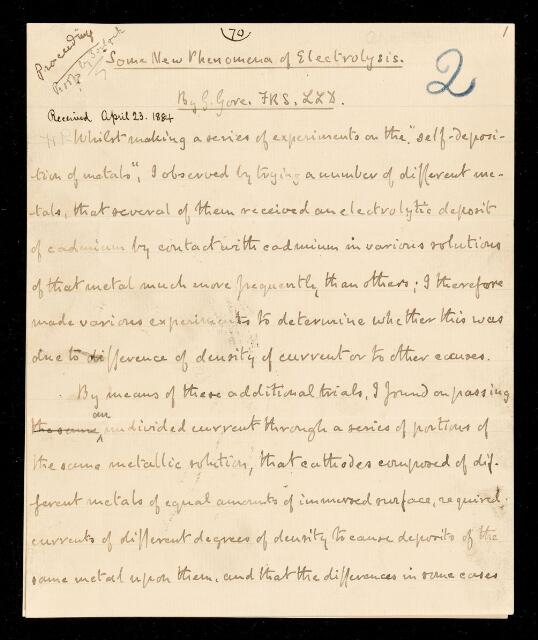 70
1
Proceedings
2
Some New Phenomena of Electrolysis.
By G. Gore. FRS. LLD.
Received April 23. 1884
Whilst making a series of experiments on the "self-deposi-
tion of metals", I observed by trying a number of different me-
tals, that several of them received an electrolytic deposit
of cadmium by contact with cadmium in various solutions
of that metal much more frequently than others; I therefore
made various experiments to determine whether this was
due to difference of density of current or to other causes.
By means of these additional trials, I found on passing
the same an undivided current through a series of portions of
the same metallic solution, that cathodes composed of dif-
ferent metals of equal amounts of immersed surface, required
currents of different degrees of density to cause deposits of the
same metal upon them, and that the differences in some cases